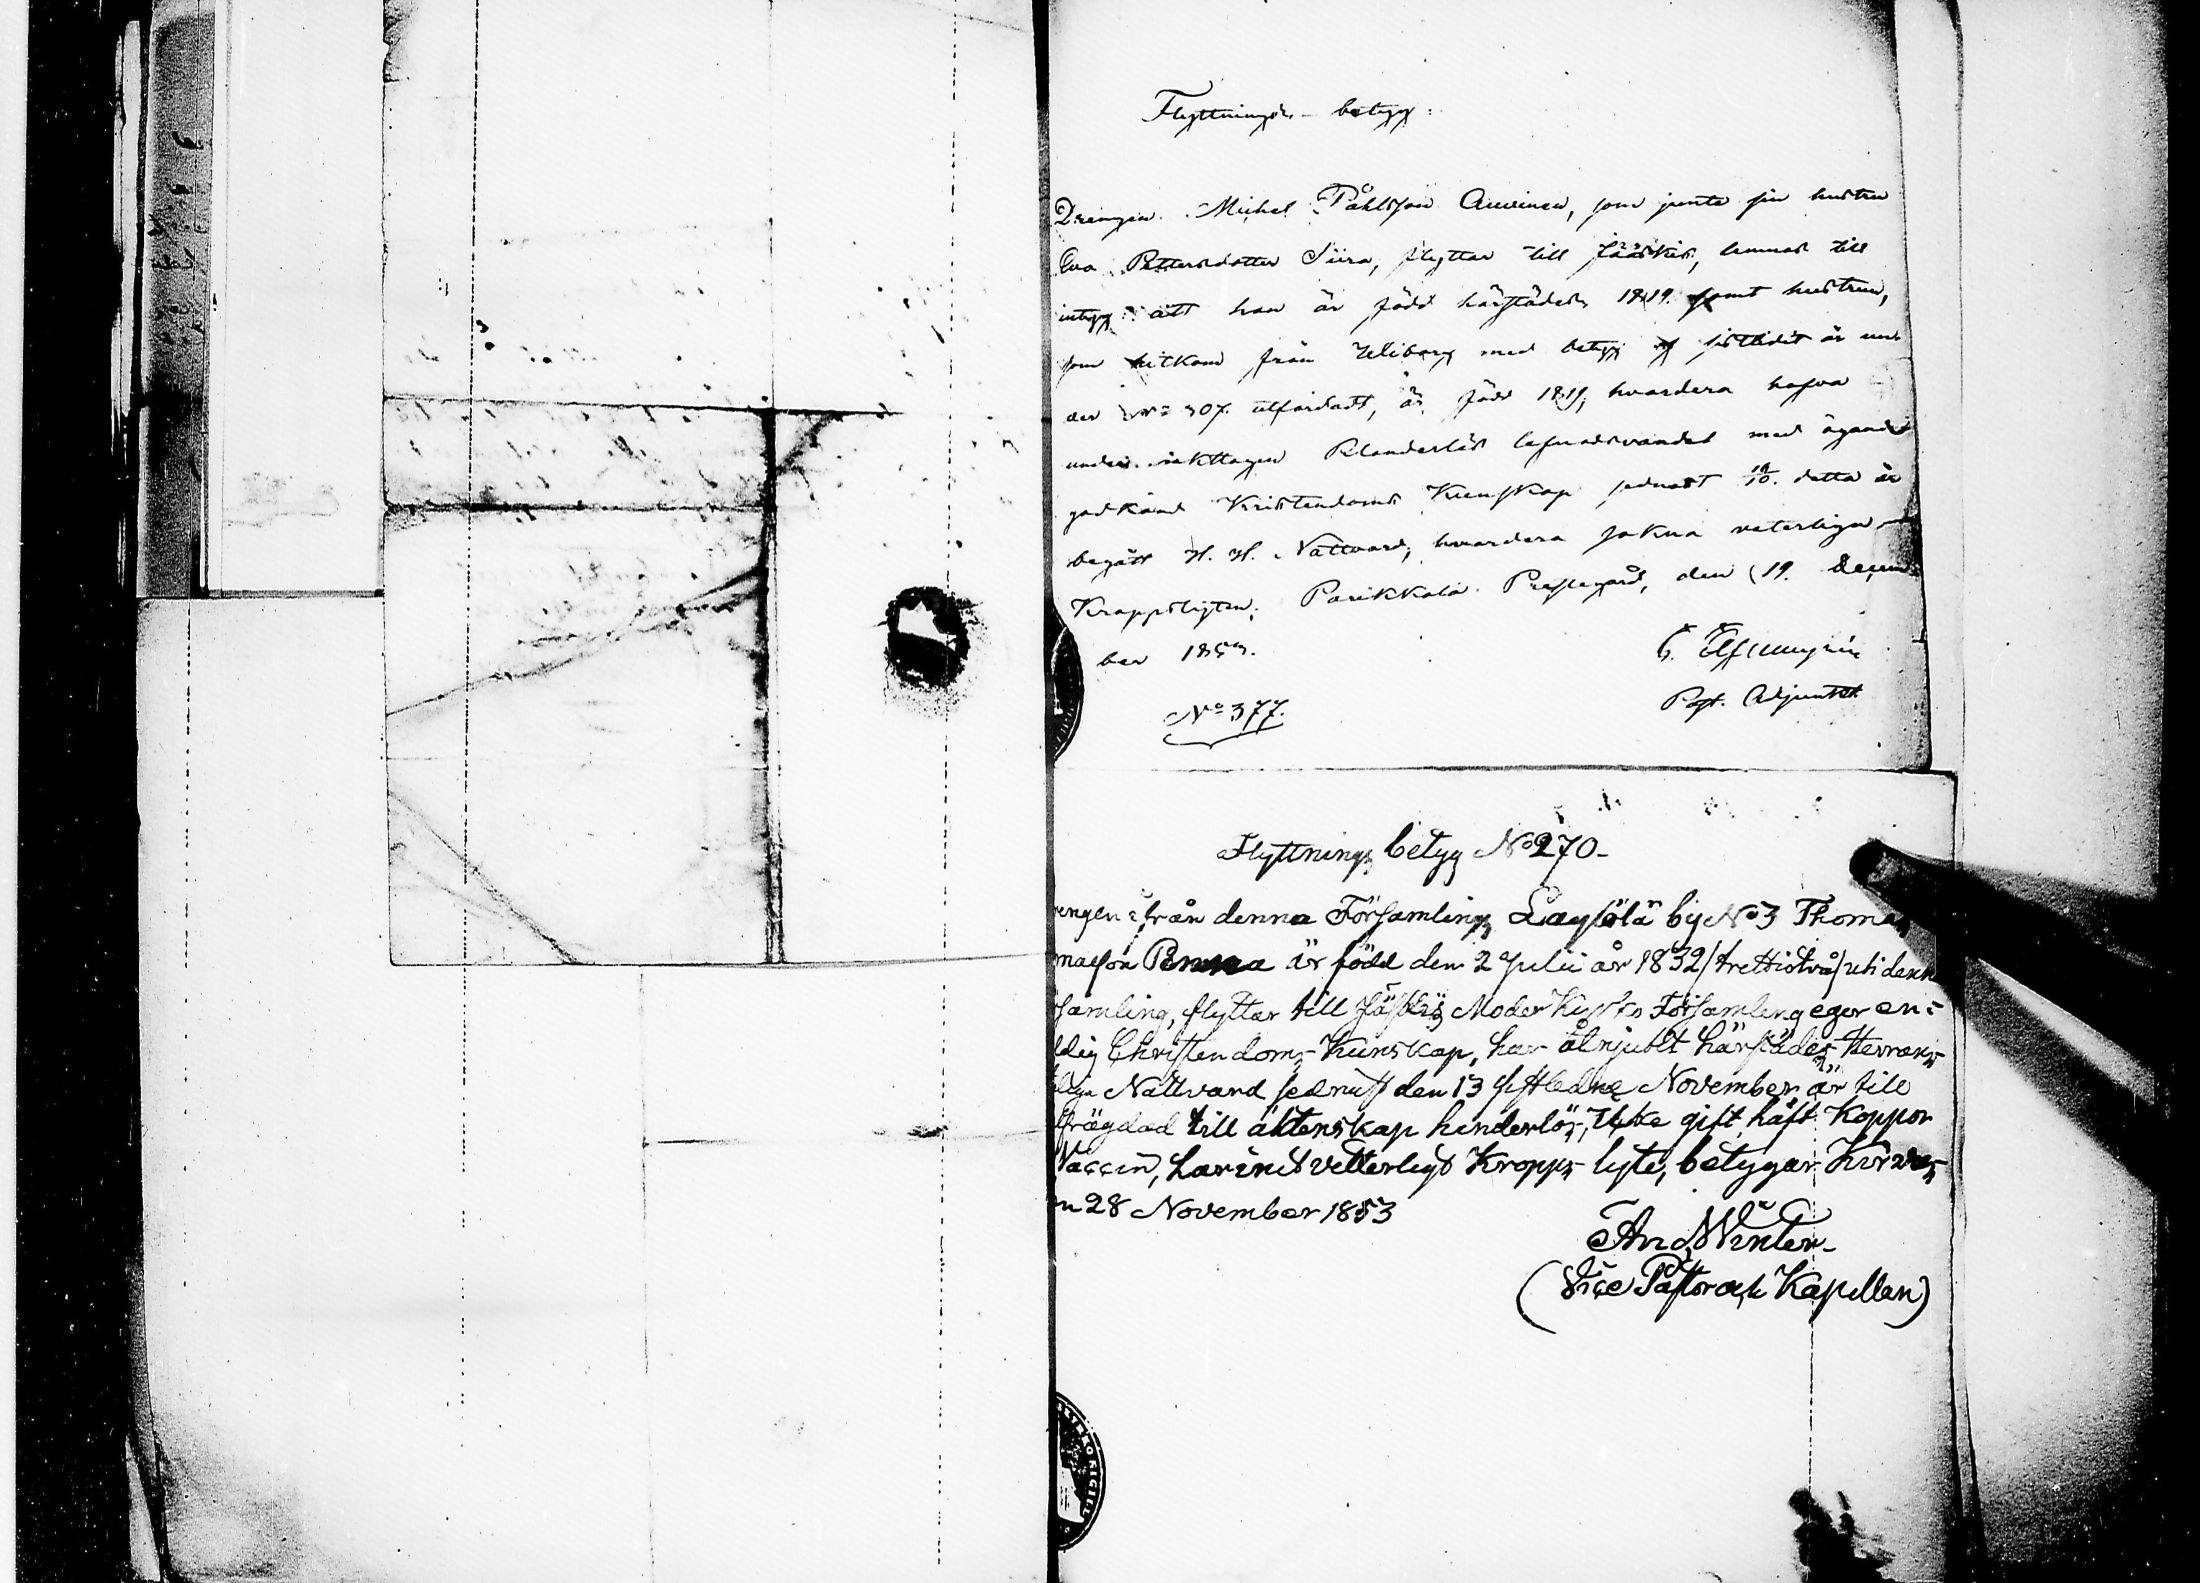 Flyttnings-betyg.
Drengen Michel Påhlsson Auvinen, som jemte sin hustru
Eva Pettersdotter Siira, flyttar till Jääskis, lemnas till
intyg att han är född härstädes 1819. samt hustrun,
som hitkom från Wiborg med betyg sistledit år un-
der No 307. utfärdadt, är född 1819; hvardera hafva
under iakttagen klanderlös lefnadsvandel med ägande
godkänd Kristendoms Kunskap sednast 19/10. detta år
begått H. H. Nattvard; hvardera sakna veterligen
Kroppslyten. Parikkala Prestegård, den 19. Decem-
ber 1853.
Past. Adjunkt
No 377.
Flyttnings betyg No 270-
engen från denna Församlings by No 3 Thomas
masson är född den 2 Julii år 1832/trettiotvå/uti denn
samling, flyttar till Jääskis Moder Kyrko Församling eger en-
ldig Christendoms-Kunskap, har åtnjutit härstädes Herrans
liga Nattvard sednast den 13 sistledne November är till
frägdad till äktenskap hinderlös, Icke gift, haft Koppor
Vaccin, har intet vetterligt Kropps-lyte, betygar
n 28 November 1853
And. Winter-
(Vice Pastor och Kapellan)